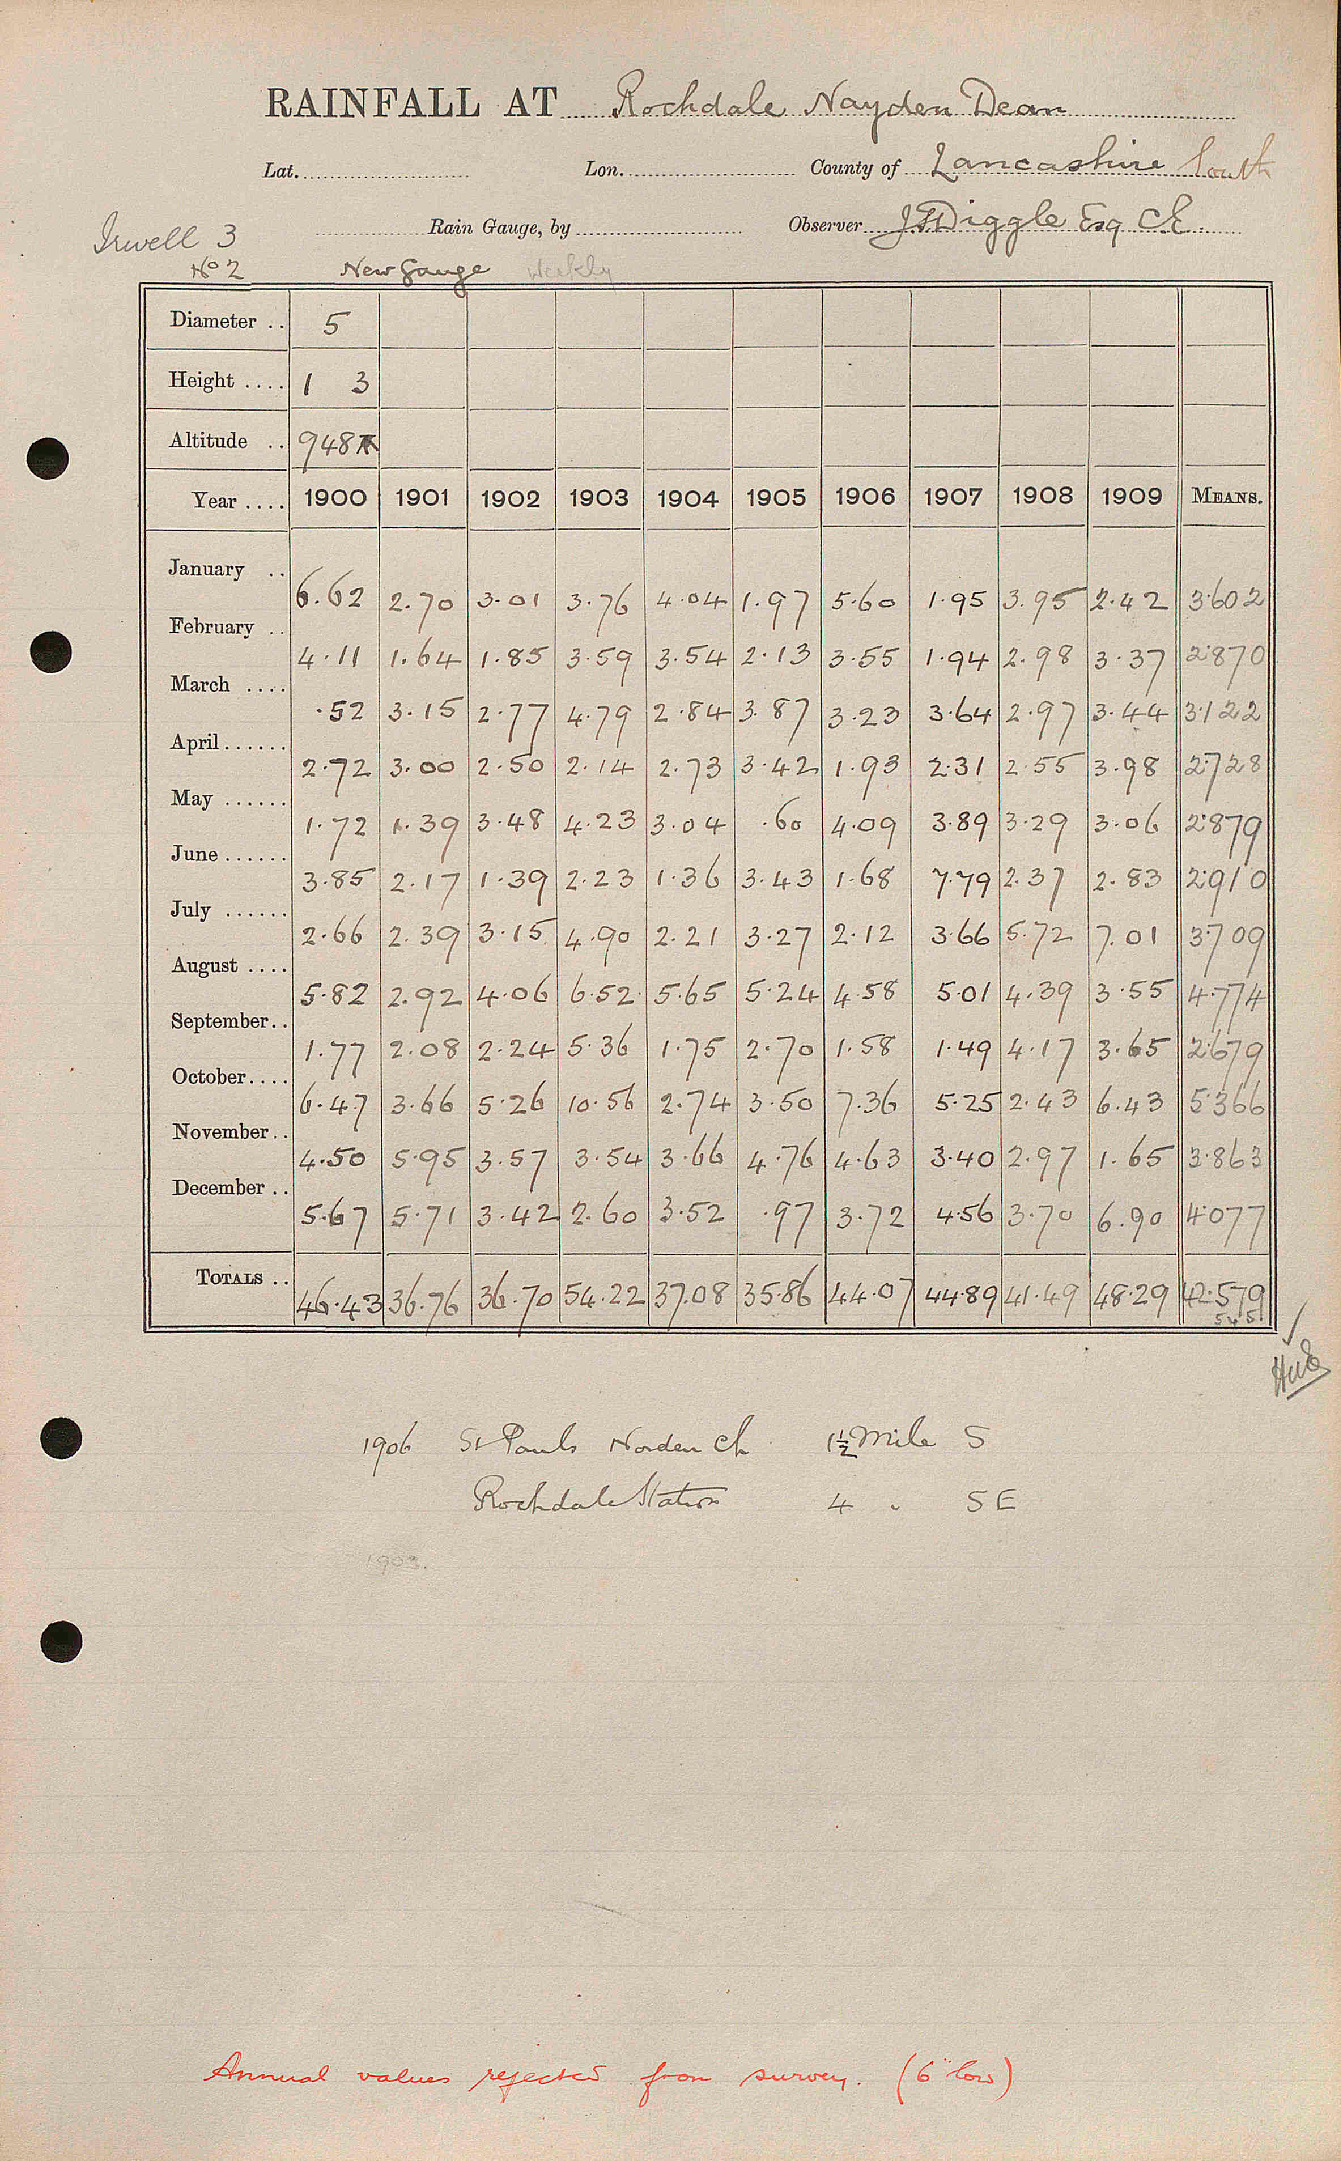 RAINFALL AT Rochdale Nayden Dean
Lat. Lon. County of Lancashire South
Irwell 3 Rain Gauge, by Observer J Diggle Esq CE
No 2 New Gauge Weekly
Diameter .. 5
Height .... 1 3
Altitude .. 948
Year .... 1900 1901 1902 1903 1904 1905 1906 1907 1908 1909 MEANS.
January .. 6.62 2.70 3.01 3.76 4.04 1.97 5.60 1.95 3.95 2.42 3.602
February .. 4.11 1.64 1.85 3.59 3.54 2.13 3.55 1.94 2.98 3.37 2.870
March .... .52 3.15 2.77 4.79 2.84 3.87 3.23 3.64 2.97 3.44 3.122
April...... 2.72 3.00 2.50 2.14 2.73 3.42 1.93 2.31 2.55 3.98 2.728
May ...... 1.72 1.39 3.48 4.23 3.04 .60 4.09 3.89 3.29 3.06 2.879
June...... 3.85 2.17 1.39 2.23 1.36 3.43 1.68 7.79 2.37 2.83 2.910
July ...... 2.66 2.39 3.15 4.90 2.21 3.27 2.12 3.66 5.72 7.01 3.709
August .... 5.82 2.92 4.06 6.52 5.65 5.24 4.58 5.01 4.39 3.55 4.774
September.. 1.77 2.08 2.24 5.36 1.75 2.70 1.58 1.49 4.17 3.65 2.679
October.... 6.47 3.66 5.26 10.56 2.74 3.50 7.36 5.25 2.43 6.43 5.366
November.. 4.50 5.95 3.57 3.54 3.66 4.76 4.63 3.40 2.97 1.65 3.863
December .. 5.67 5.71 3.42 2.60 3.52 .97 3.72 4.56 3.70 6.90 4.077
TOTALS .. 46.43 36.76 36.70 54.22 37.08 35.86 44.07 44.89 41.49 48.29 42.579
545
1906 St Pauls Norden Ch 1½ Mile S
Rochdale Station 4 " SE
1903.
Annual values rejected from survey. (6" low)